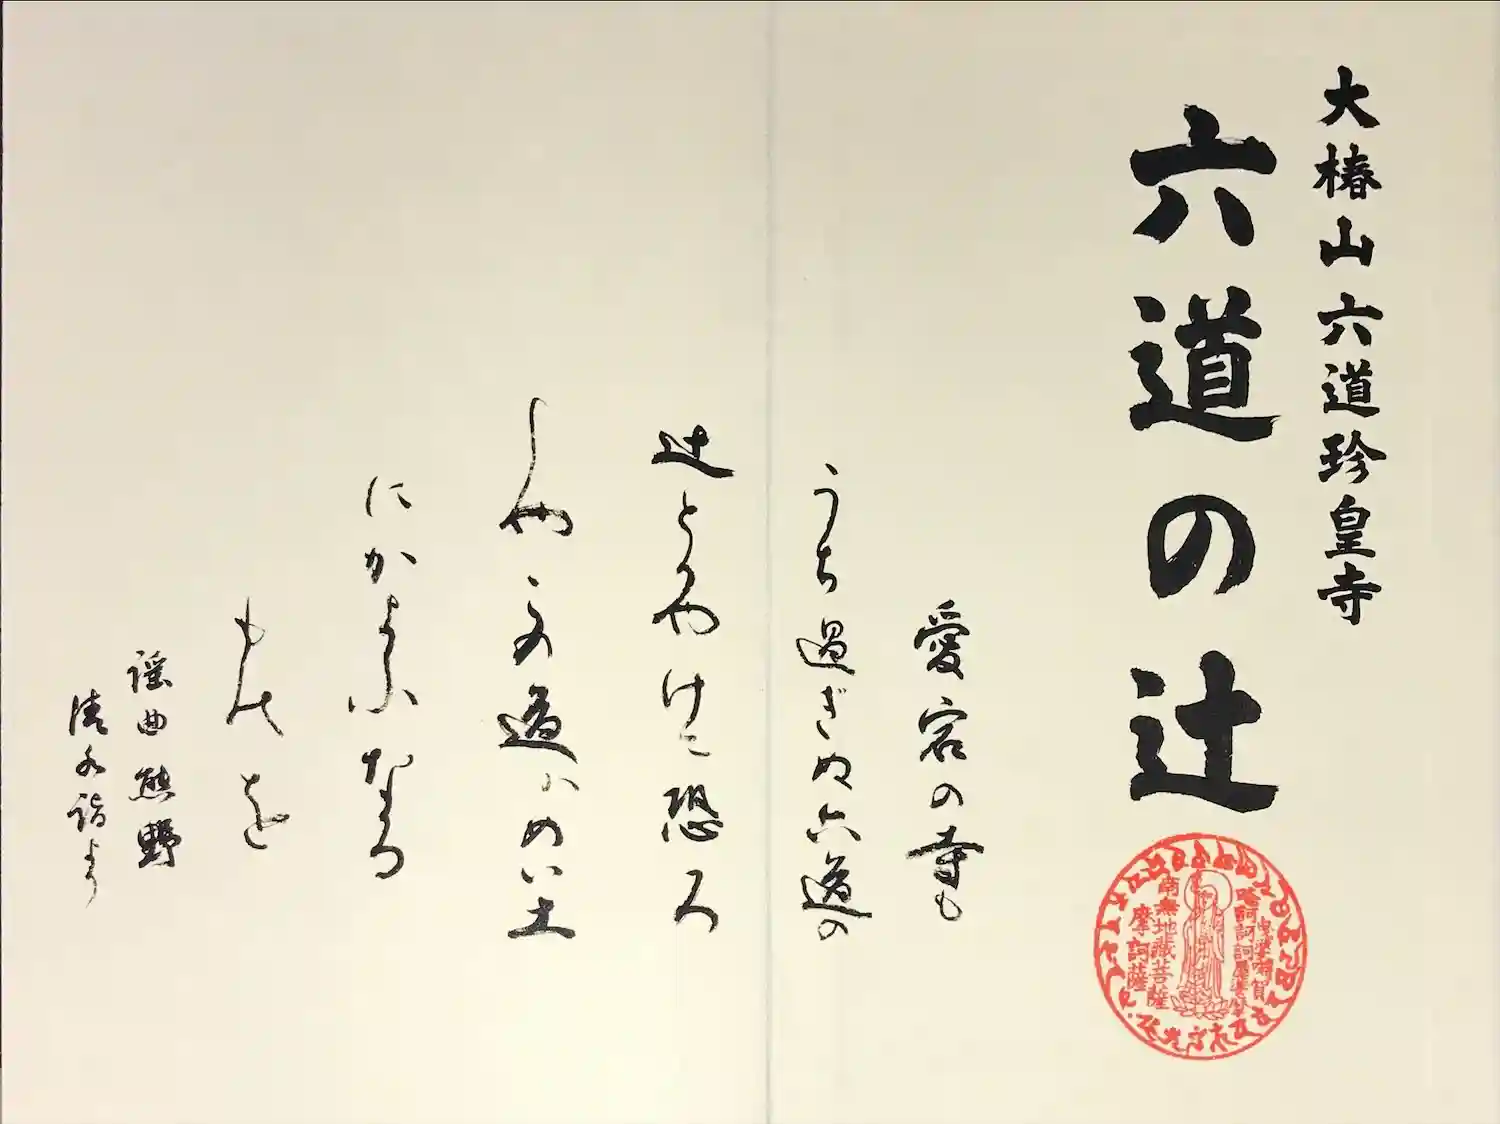 大椿山六道珍皇寺
六道の辻
愛宕の寺も
うち過ぎぬ六道の
辻とかやげに恐ろ
しやこの道はめい土
にかよふなる
ものを
謡曲熊野
清水詣より
南無地蔵菩薩
摩訶薩